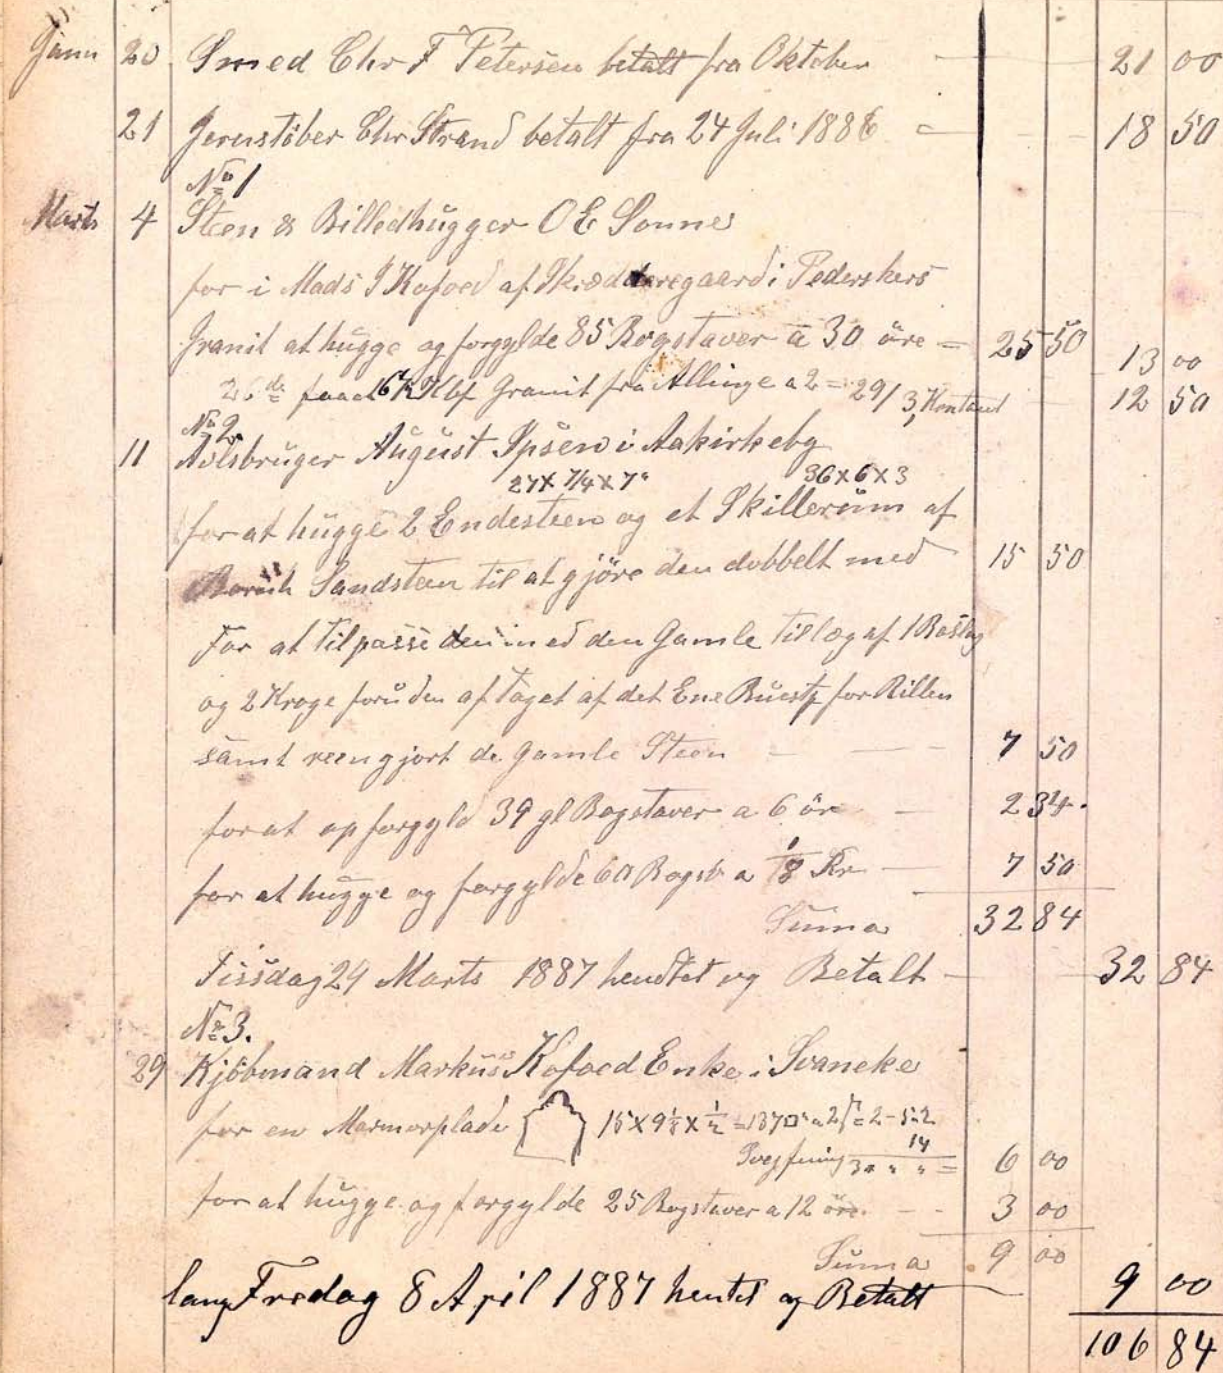 Jann 20 Smed Chr F Petersen betalt fra Oktober 21 00
21 Jernstöber Chr Strand betalt fra 24 Juli 1886 18 50
No 1
Marts 4 Steen & Billedhugger O E Sonne
for i Mads J Kofoed af Skrædderegaard i Pederskers
Granit at hugge og forgylde 85 Bogstaver a 30 öre = 25 50 13 00
26de faaet Granit fra Allinge a 2 = 29/3 Kontant 12 50
No 2
11 Avlsbruger August Ipsen i Aakirkeby
27 X 7/4 X 7" 36 X 6 X 3
for at hugge 2 Endesteen og et Skillerum af
Sandsteen til at gjöre den dobbelt med 15 50
For at tilpasse den med den Gamle tillæg af 1
og 2 Kroge foruden af taget af det Ene for Rillen
samt reengjort de gamle Steen - 7 50
for at opforgyld 39 gl Bogstaver a 6 ör - 2 34
for at hugge og forgylde 60 Bogst a 1/8 Kr - 7 50
Suma 32 84
Tissdag 29 Marts 1887 hendtet og Betalt - 32 84
No 3.
29 Kjöbmand Markus Kofoed Enke i Svaneke
for en Marmorplade 15 X 9 1/8 X 1/2 = 137 □" a 2 = 2 - 5 2
14
3 " " " = 6 00
for at hugge og forgylde 25 Bogstaver a 12 öre. - - 3 00
Suma 9 00
lang Fredag 8 April 1887 hentet og Betalt 9 00
106 84